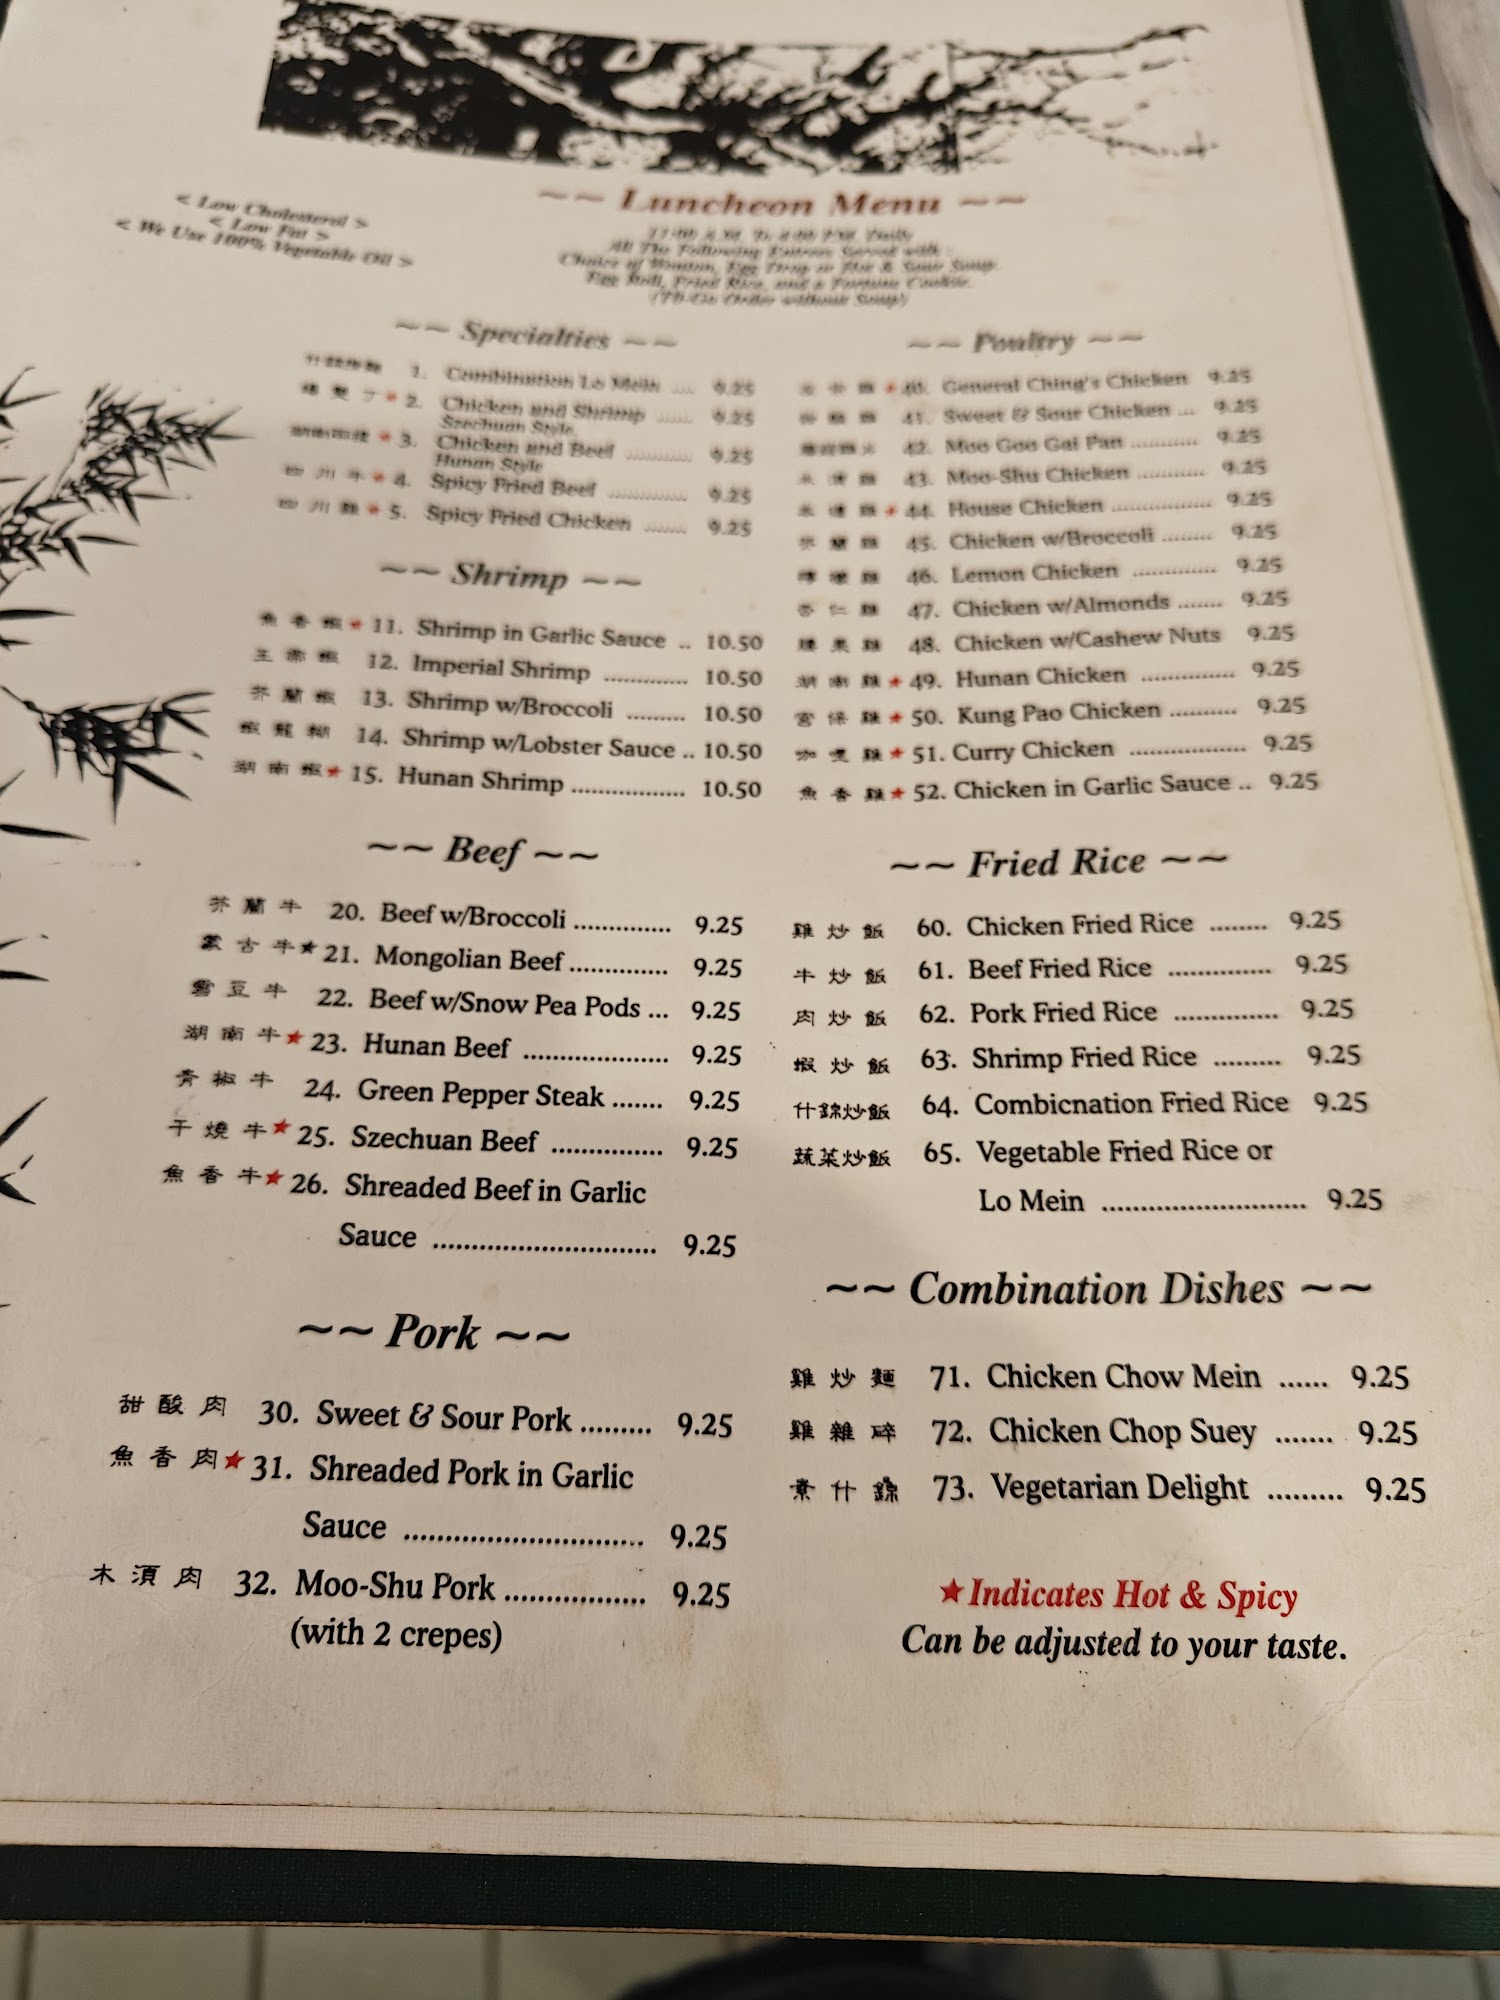 ~~ Luncheon Menu ~~
< Low Cholesterol >
< Low Fat >
< We Use 100% Vegetable Oil >
All The Following Entrees Served with
Choice of Wonton, Egg Drop or Hot & Sour Soup.
Egg Roll, Fried Rice, and a Fortune Cookie.
(To-Go Order without Soup)
~~ Specialties ~~
1. Combination Lo Mein .... 9.25
★ 2. Chicken and Shrimp ...... 9.25
Szechuan Style
★ 3. Chicken and Beef ............ 9.25
Hunan Style
四川牛★ 4. Spicy Fried Beef .............. 9.25
四川雞★ 5. Spicy Fried Chicken ....... 9.25
~~ Shrimp ~~
魚香蝦★ 11. Shrimp in Garlic Sauce .. 10.50
12. Imperial Shrimp .............. 10.50
芥蘭蝦 13. Shrimp w/Broccoli ......... 10.50
蝦龍糊 14. Shrimp w/Lobster Sauce .. 10.50
湖南蝦★ 15. Hunan Shrimp .................. 10.50
~~ Beef ~~
芥蘭牛 20. Beef w/Broccoli ............... 9.25
蒙古牛★ 21. Mongolian Beef ............... 9.25
雪豆牛 22. Beef w/Snow Pea Pods ... 9.25
湖南牛★ 23. Hunan Beef ..................... 9.25
青椒牛 24. Green Pepper Steak ....... 9.25
干燒牛★ 25. Szechuan Beef ................ 9.25
魚香牛★ 26. Shreaded Beef in Garlic
Sauce ............................... 9.25
~~ Pork ~~
甜酸肉 30. Sweet & Sour Pork ......... 9.25
魚香肉★ 31. Shreaded Pork in Garlic
Sauce ............................... 9.25
木須肉 32. Moo-Shu Pork ................. 9.25
(with 2 crepes)
~~ Poultry ~~
★ 40. General Ching's Chicken 9.25
41. Sweet & Sour Chicken ... 9.25
42. Moo Goo Gai Pan ........... 9.25
43. Moo-Shu Chicken ............ 9.25
★ 44. House Chicken ................. 9.25
芥蘭雞 45. Chicken w/Broccoli ........ 9.25
檸檬雞 46. Lemon Chicken .............. 9.25
杏仁雞 47. Chicken w/Almonds ....... 9.25
腰果雞 48. Chicken w/Cashew Nuts 9.25
湖南雞★ 49. Hunan Chicken ............... 9.25
宮保雞★ 50. Kung Pao Chicken ........... 9.25
咖喱雞★ 51. Curry Chicken .................. 9.25
魚香雞★ 52. Chicken in Garlic Sauce .. 9.25
~~ Fried Rice ~~
雞炒飯 60. Chicken Fried Rice ........ 9.25
牛炒飯 61. Beef Fried Rice .............. 9.25
肉炒飯 62. Pork Fried Rice .............. 9.25
蝦炒飯 63. Shrimp Fried Rice ......... 9.25
什錦炒飯 64. Combicnation Fried Rice 9.25
蔬菜炒飯 65. Vegetable Fried Rice or
Lo Mein ........................... 9.25
~~ Combination Dishes ~~
雞炒麵 71. Chicken Chow Mein ...... 9.25
雞雜碎 72. Chicken Chop Suey ....... 9.25
素什錦 73. Vegetarian Delight ......... 9.25
★Indicates Hot & Spicy
Can be adjusted to your taste.